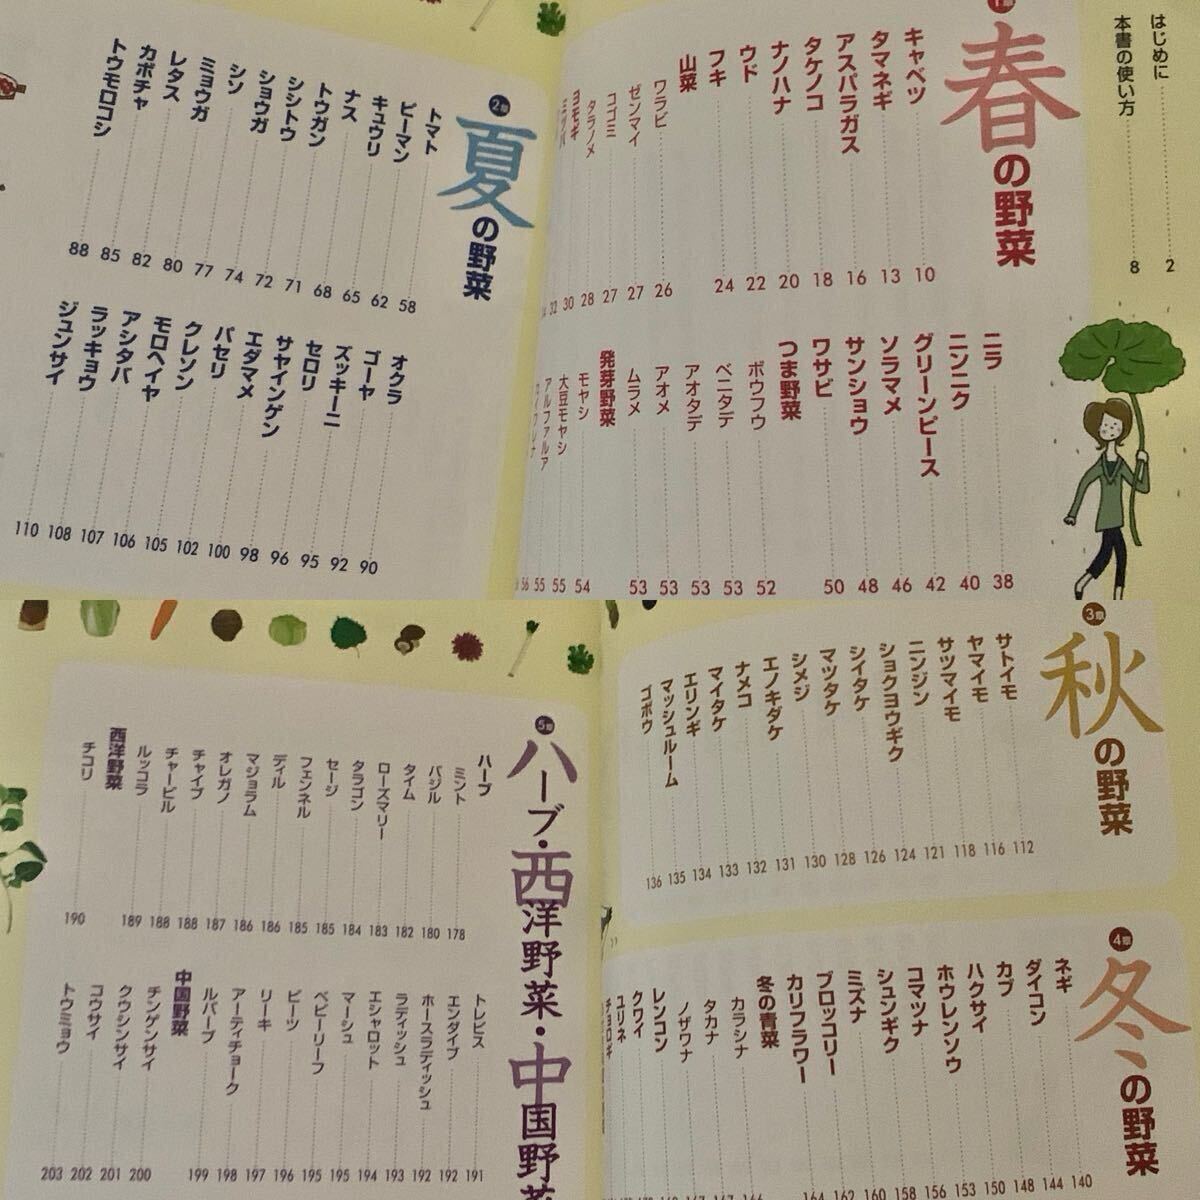 はじめに 2
本書の使い方 8
春の野菜
キャベツ 10
タマネギ 13
アスパラガス 16
タケノコ 18
ナノハナ 20
ウド 22
フキ 24
山菜
ワラビ 26
ゼンマイ 27
コゴミ 27
タラノメ 28
ヨモギ 30
ミツバ 32
ニラ 38
ニンニク 40
グリーンピース 42
ソラマメ 46
サンショウ 48
ワサビ 50
つま野菜
ボウフウ 52
ベニタデ 53
アオタデ 53
アオメ 53
ムラメ 53
発芽野菜
モヤシ 54
大豆モヤシ 55
アルファルファ 55
56
2章
夏の野菜
トマト 58
ピーマン 62
キュウリ 65
ナス 68
トウガン 71
シシトウ 72
ショウガ 74
シソ 77
ミョウガ 80
レタス 82
カボチャ 85
トウモロコシ 88
オクラ 90
ゴーヤ 92
ズッキーニ 95
セロリ 96
サヤインゲン 98
エダマメ 100
パセリ 102
クレソン 105
モロヘイヤ 106
アシタバ 107
ラッキョウ 108
ジュンサイ 110
3章
秋の野菜
サトイモ 112
ヤマイモ 116
サツマイモ 118
ニンジン 121
ショクヨウギク 124
シイタケ 126
マツタケ 128
シメジ 130
エノキダケ 131
ナメコ 132
マイタケ 133
エリンギ 134
マッシュルーム 135
ゴボウ 136
4章
冬の野菜
ネギ 140
ダイコン 144
カブ 148
ハクサイ 150
ホウレンソウ 153
コマツナ 156
シュンギク 158
ミズナ 160
ブロッコリー 162
カリフラワー 164
冬の青菜
カラシナ 166
タカナ 167
ノザワナ 167
レンコン
クワイ
ユリネ
チョロギ
5章
ハーブ・西洋野菜・中国野菜
ハーブ
ミント 178
バジル 180
タイム 182
ローズマリー 183
タラゴン 184
セージ 185
フェンネル 185
ディル 186
マジョラム 186
オレガノ 187
チャイブ 188
チャービル 188
ルッコラ 189
西洋野菜
チコリ 190
トレビス 191
エンダイブ 192
ホースラディッシュ 192
ラディッシュ 193
エシャロット 194
マーシュ 195
ベビーリーフ 195
ビーツ 196
リーキ 197
アーティチョーク 198
ルバーブ 199
中国野菜
チンゲンサイ 200
クウシンサイ 201
コウサイ 202
トウミョウ 203